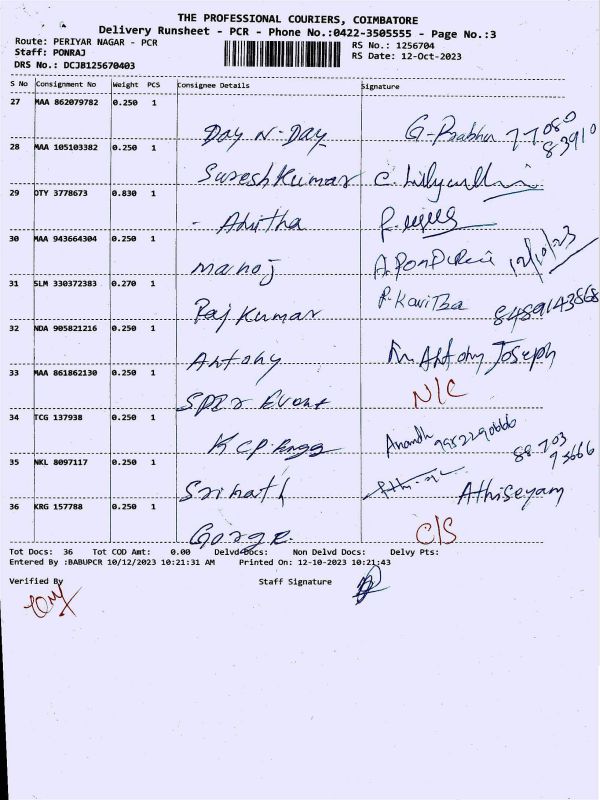 THE PROFESSIONAL COURIERS, COIMBATORE
Delivery Runsheet - PCR - Phone No.:0422-3505555 - Page No.:3
Route: PERIYAR NAGAR - PCR
RS No.: 1256704
Staff: PONRAJ
RS Date: 12-Oct-2023
DRS No.: DCJB125670403
S No Consignment No Weight PCS Consignee Details Signature
27 MAA 862079782 0.250 1
Day N-Day G-Prabhu
28 MAA 105103382 0.250 1
Suresh Kumar
29 OTY 3778673 0.830 1
30 MAA 943664304 0.250 1
manoj 12/10/23
31 SLM 330372383 0.270 1
Raj Kumar P. Kavitha 8489143568
32 NDA 905821216 0.250 1
Antony M. Antony Joseph
33 MAA 861862130 0.250 1
Event N/C
34 TCG 137938 0.250 1
KCP. Engg Anandh
35 NKL 8097117 0.250 1
Srinath Athiseyam
36 KRG 157788 0.250 1
George C/S
Tot Docs: 36 Tot COD Amt: 0.00 Delvd Docs: Non Delvd Docs: Delvy Pts:
Entered By :BABUPCR 10/12/2023 10:21:31 AM Printed On: 12-10-2023 10:21:43
Verified By Staff Signature